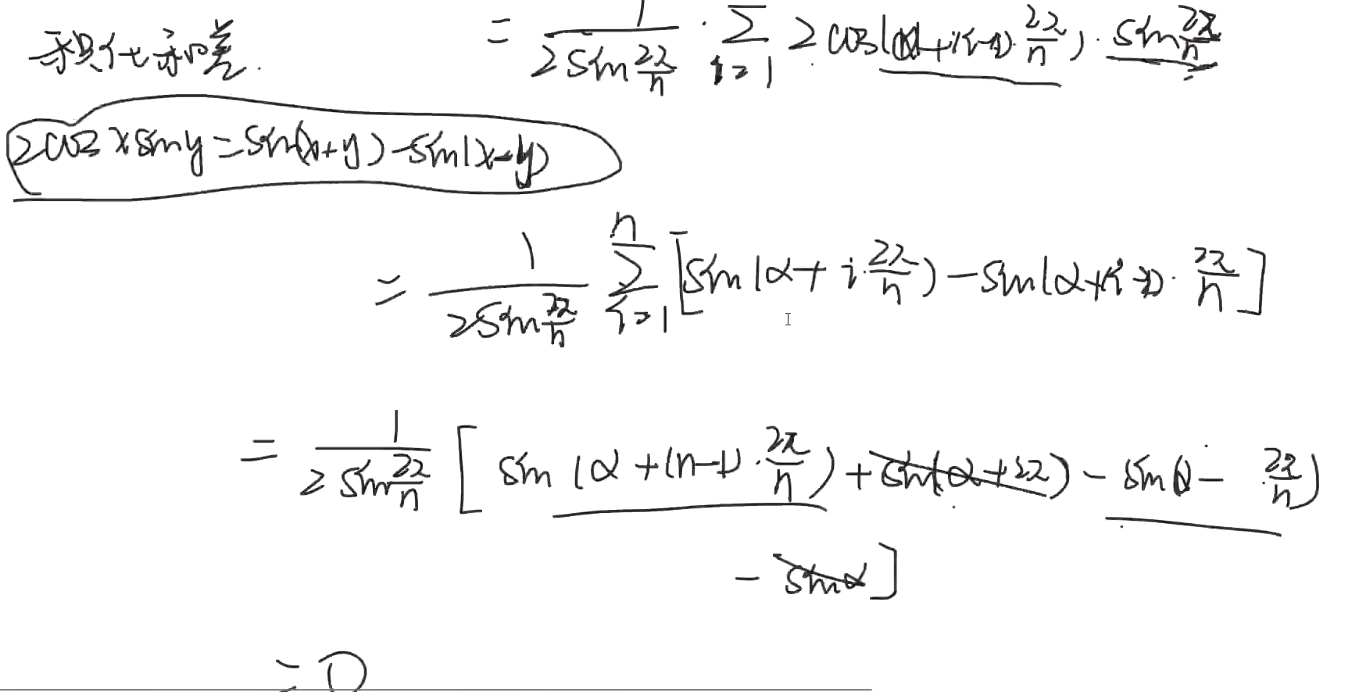 积化和差.
= 1/(2sin 2π/n) · Σ_{i=1} 2cos(α+(i-1)·2π/n)·sin 2π/n
2cosxsiny=sin(x+y)-sin(x-y)
= 1/(2sin 2π/n) Σ_{i=1}^{n} [sin(α+i·2π/n)-sin(α+(i-2)·2π/n]
= 1/(2sin 2π/n) [sin(α+(n-1)·2π/n)+sin(α+2π)-sin(α-2π/n)
-sinα]
=0